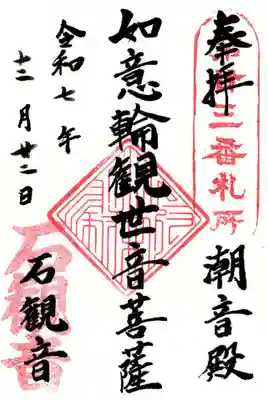 奉拝
二番札所
潮音殿
如意輪観世音菩薩
令和七年
十二月廿二日
石観音
石観音